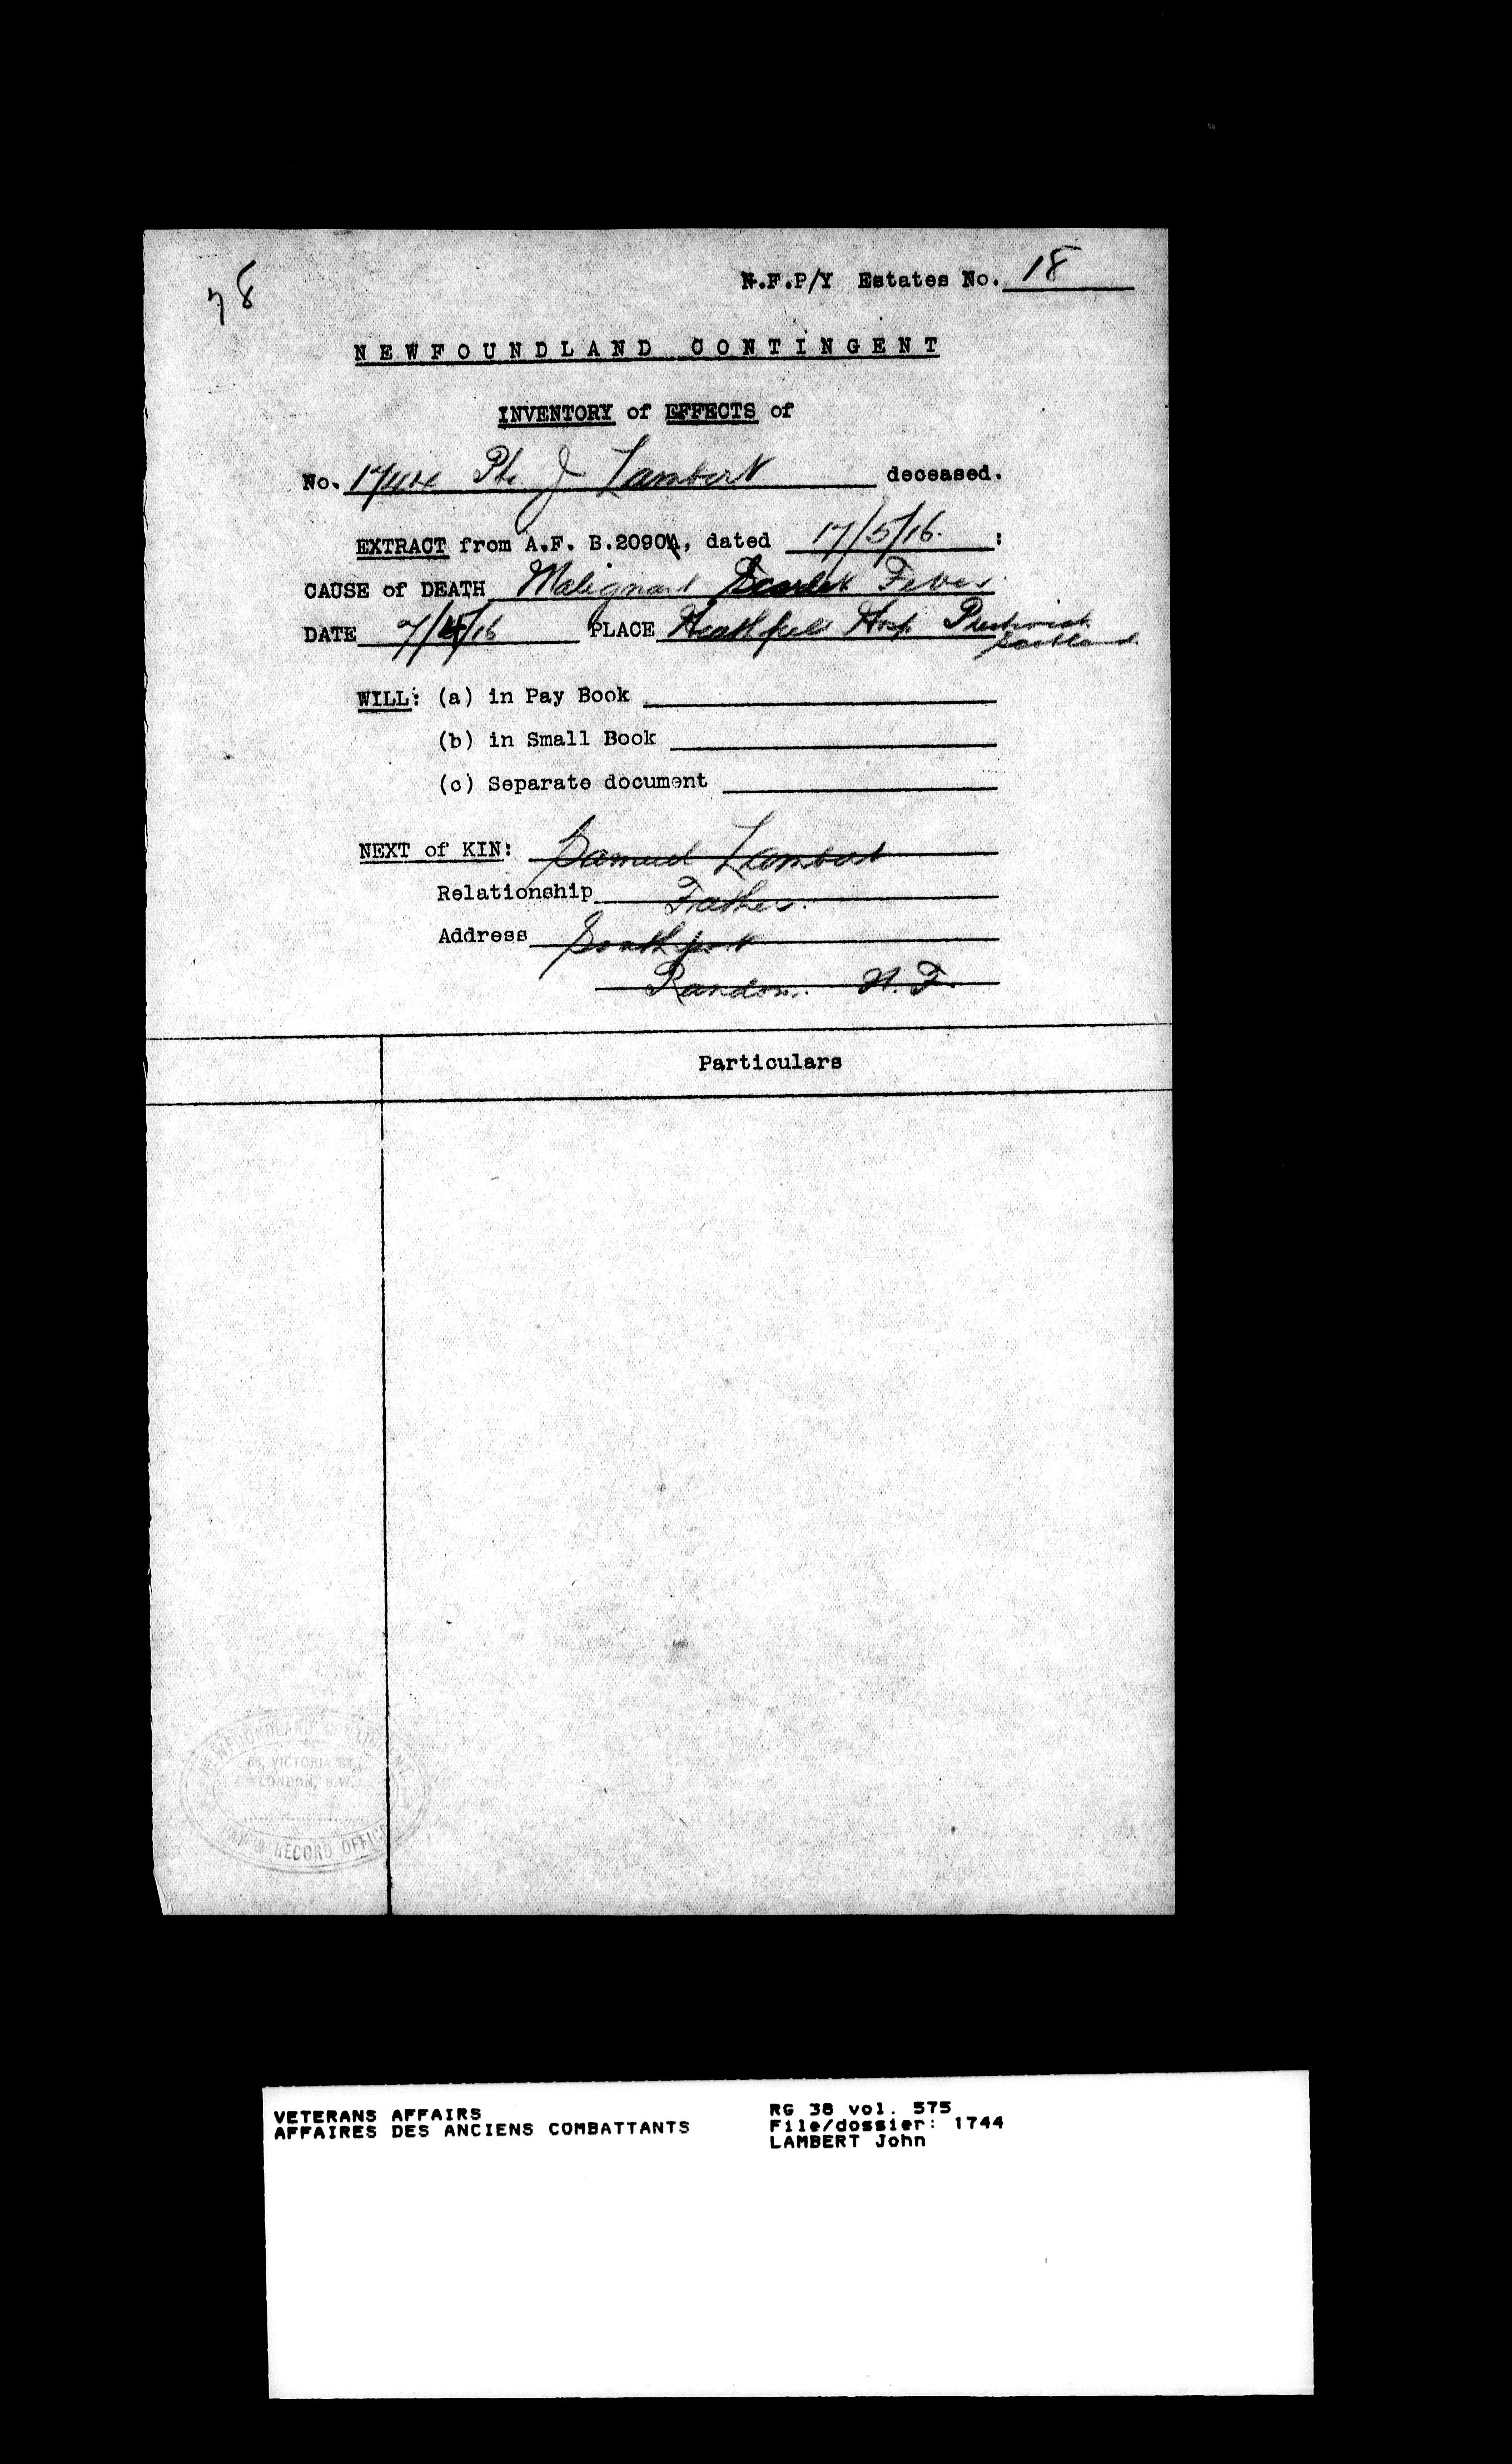 78
N.F.P/Y Estates No. 18
NEWFOUNDLAND CONTINGENT
INVENTORY of EFFECTS of
No. 1744 Pte. J Lambert deceased.
EXTRACT from A.F. B.2090A, dated 17/5/16. :
CAUSE of DEATH Malignant Scarlet Fever.
DATE 7/5/16 PLACE Heathfield Hosp. Prestwick
Scotland.
WILL: (a) in Pay Book
(b) in Small Book
(c) Separate document
NEXT of KIN: Samuel Lambert
Relationship Father.
Address Southport
Random. N.F.
Particulars
NEWFOUNDLAND CONTINGENT
58, VICTORIA ST.,
LONDON, S.W.
PAY & RECORD OFFICE
VETERANS AFFAIRS
AFFAIRES DES ANCIENS COMBATTANTS
RG 38 vol. 575
File/dossier: 1744
LAMBERT John